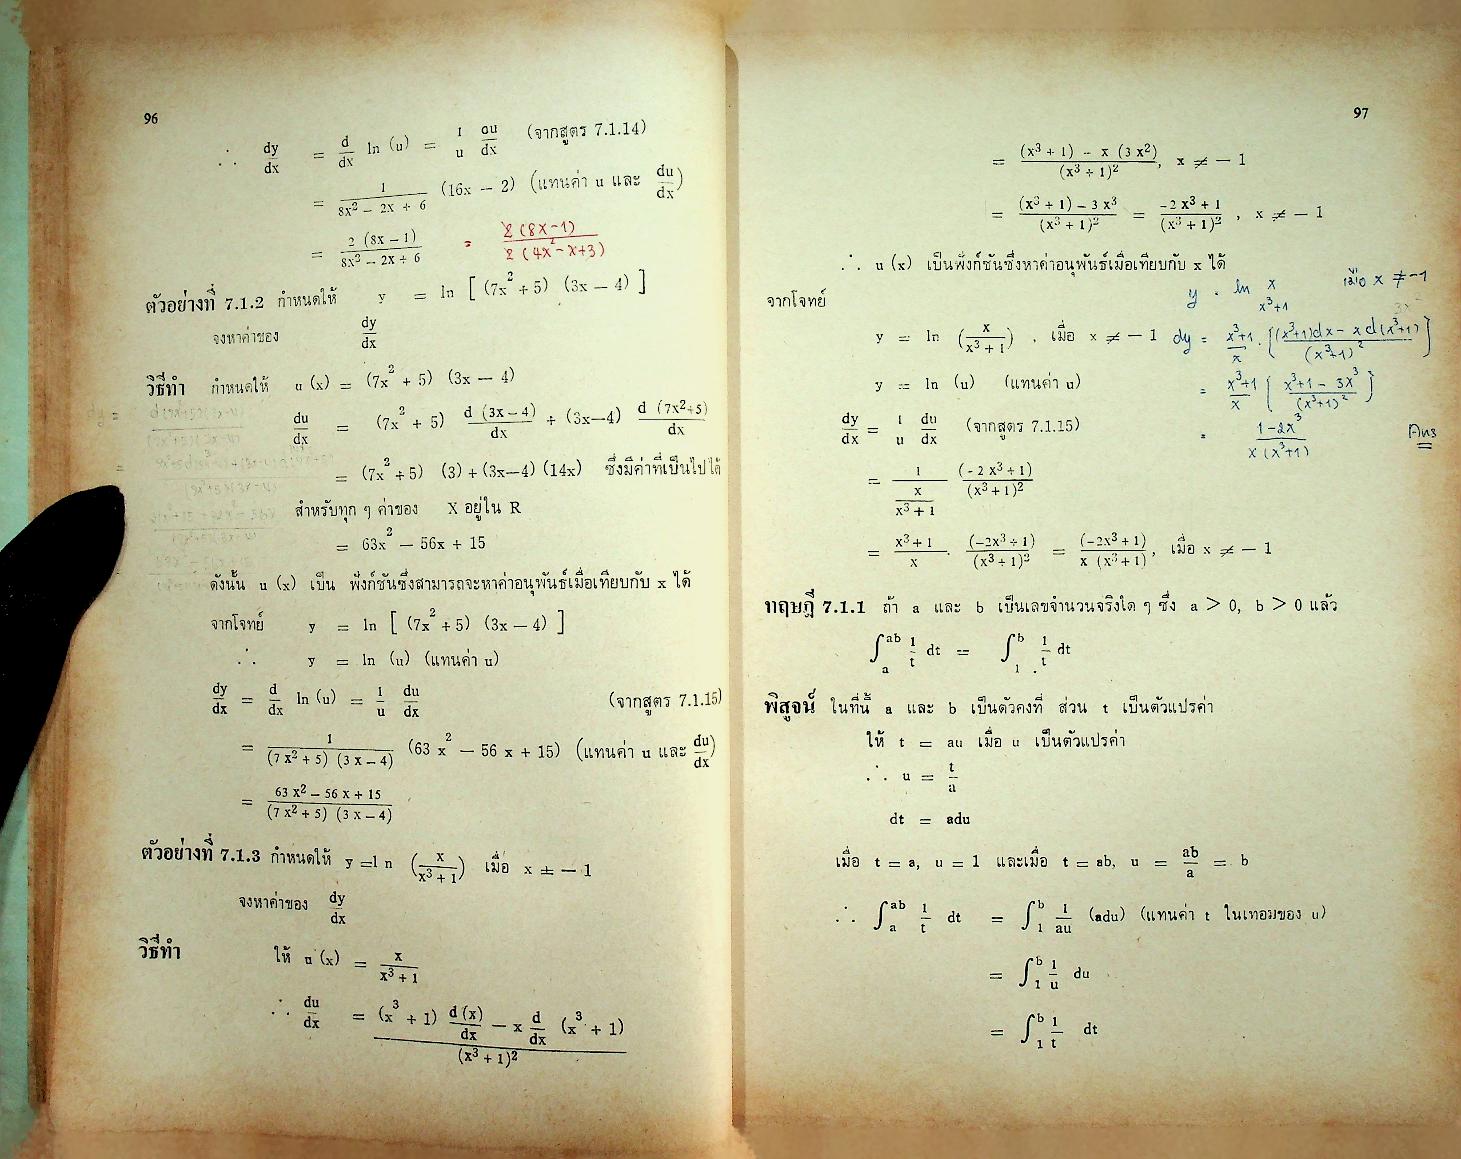 96
∴ dy/dx = d/dx ln (u) = 1/u du/dx (จากสูตร 7.1.14)
= 1/(8x² − 2x + 6) (16x − 2) (แทนค่า u และ du/dx)
= 2 (8x − 1)/(8x² − 2x + 6) = 2(8x−1)/2(4x²−x+3)
ตัวอย่างที่ 7.1.2 กำหนดให้ y = ln [ (7x² + 5) (3x − 4) ]
จงหาค่าของ dy/dx
วิธีทำ กำหนดให้ u (x) = (7x² + 5) (3x − 4)
du/dx = (7x² + 5) d (3x−4)/dx + (3x−4) d (7x²+5)/dx
= (7x² + 5) (3) + (3x−4) (14x) ซึ่งมีค่าที่เป็นไปได้
สำหรับทุก ๆ ค่าของ X อยู่ใน R
= 63x² − 56x + 15
ดังนั้น u (x) เป็น ฟังก์ชันซึ่งสามารถจะหาค่าอนุพันธ์เมื่อเทียบกับ x ได้
จากโจทย์ y = ln [ (7x² + 5) (3x − 4) ]
∴ y = ln (u) (แทนค่า u)
dy/dx = d/dx ln (u) = 1/u du/dx (จากสูตร 7.1.15)
= 1/((7 x² + 5) (3 x − 4)) (63 x² − 56 x + 15) (แทนค่า u และ du/dx)
= (63 x² − 56 x + 15)/((7 x² + 5) (3 x − 4))
ตัวอย่างที่ 7.1.3 กำหนดให้ y = l n (x/(x³ + 1)) เมื่อ x ± − 1
จงหาค่าของ dy/dx
วิธีทำ ให้ u (x) = x/(x³ + 1)
∴ du/dx = ((x³ + 1) d (x)/dx − x d/dx (x³ + 1))/(x³ + 1)²
97
= ((x³ + 1) − x (3 x²))/(x³ + 1)², x ≠ − 1
= ((x³ + 1) − 3 x³)/(x³ + 1)² = (−2 x³ + 1)/(x³ + 1)² , x ≠ − 1
∴ u (x) เป็นฟังก์ชันซึ่งหาค่าอนุพันธ์เมื่อเทียบกับ x ได้
จากโจทย์
y = ln x/(x³+1) เมื่อ x ≠ −1
3x²
y = ln (x/(x³ + 1)) , เมื่อ x ≠ − 1
dy = (x³+1)/x · [((x³+1)dx − x d(x³+1))/(x³+1)²]
y = ln (u) (แทนค่า u)
= (x³+1)/x [(x³+1 − 3x³)/(x³+1)²]
dy/dx = 1/u du/dx (จากสูตร 7.1.15)
= (1−2x³)/(x (x³+1)) Ans
= 1/(x/(x³ + 1)) (− 2 x³ + 1)/(x³ + 1)²
= (x³ + 1)/x · (−2x³ + 1)/(x³ + 1)² = (−2x³ + 1)/(x (x³ + 1)), เมื่อ x ≠ − 1
ทฤษฎี 7.1.1 ถ้า a และ b เป็นเลขจำนวนจริงใด ๆ ซึ่ง a > 0, b > 0 แล้ว
∫ₐᵃᵇ 1/t dt = ∫₁ᵇ 1/t dt
พิสูจน์ ในที่นี้ a และ b เป็นตัวคงที่ ส่วน t เป็นตัวแปรค่า
ให้ t = au เมื่อ u เป็นตัวแปรค่า
∴ u = t/a
dt = adu
เมื่อ t = a, u = 1 และเมื่อ t = ab, u = ab/a = b
∴ ∫ₐᵃᵇ 1/t dt = ∫₁ᵇ 1/au (adu) (แทนค่า t ในเทอมของ u)
= ∫₁ᵇ 1/u du
= ∫₁ᵇ 1/t dt